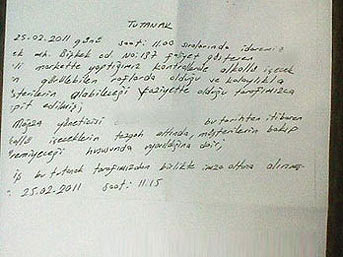 TUTANAK
25-02-2011 günü saat: 11.00 sıralarında idaremiz
ek mh. Bişkek cd. No: 137 faaliyet gösteren
li markette yaptığımız kontrollerde alkollü içecek
n görülebilen raflarda olduğu ve kolaylıkla
şterilerin alabileceği vaziyette olduğu tarafımızca
spit edilmiş;
Mağaza yöneticisi bu tarihten itibaren
kollü içeceklerin tezgah altında, müşterilerin bakıp
remiyeceği hususunda uyarıldığına dair;
İş bu tutanak tarafımızdan birlikte imza altına alınmış
25.02.2011 saat: 11.15